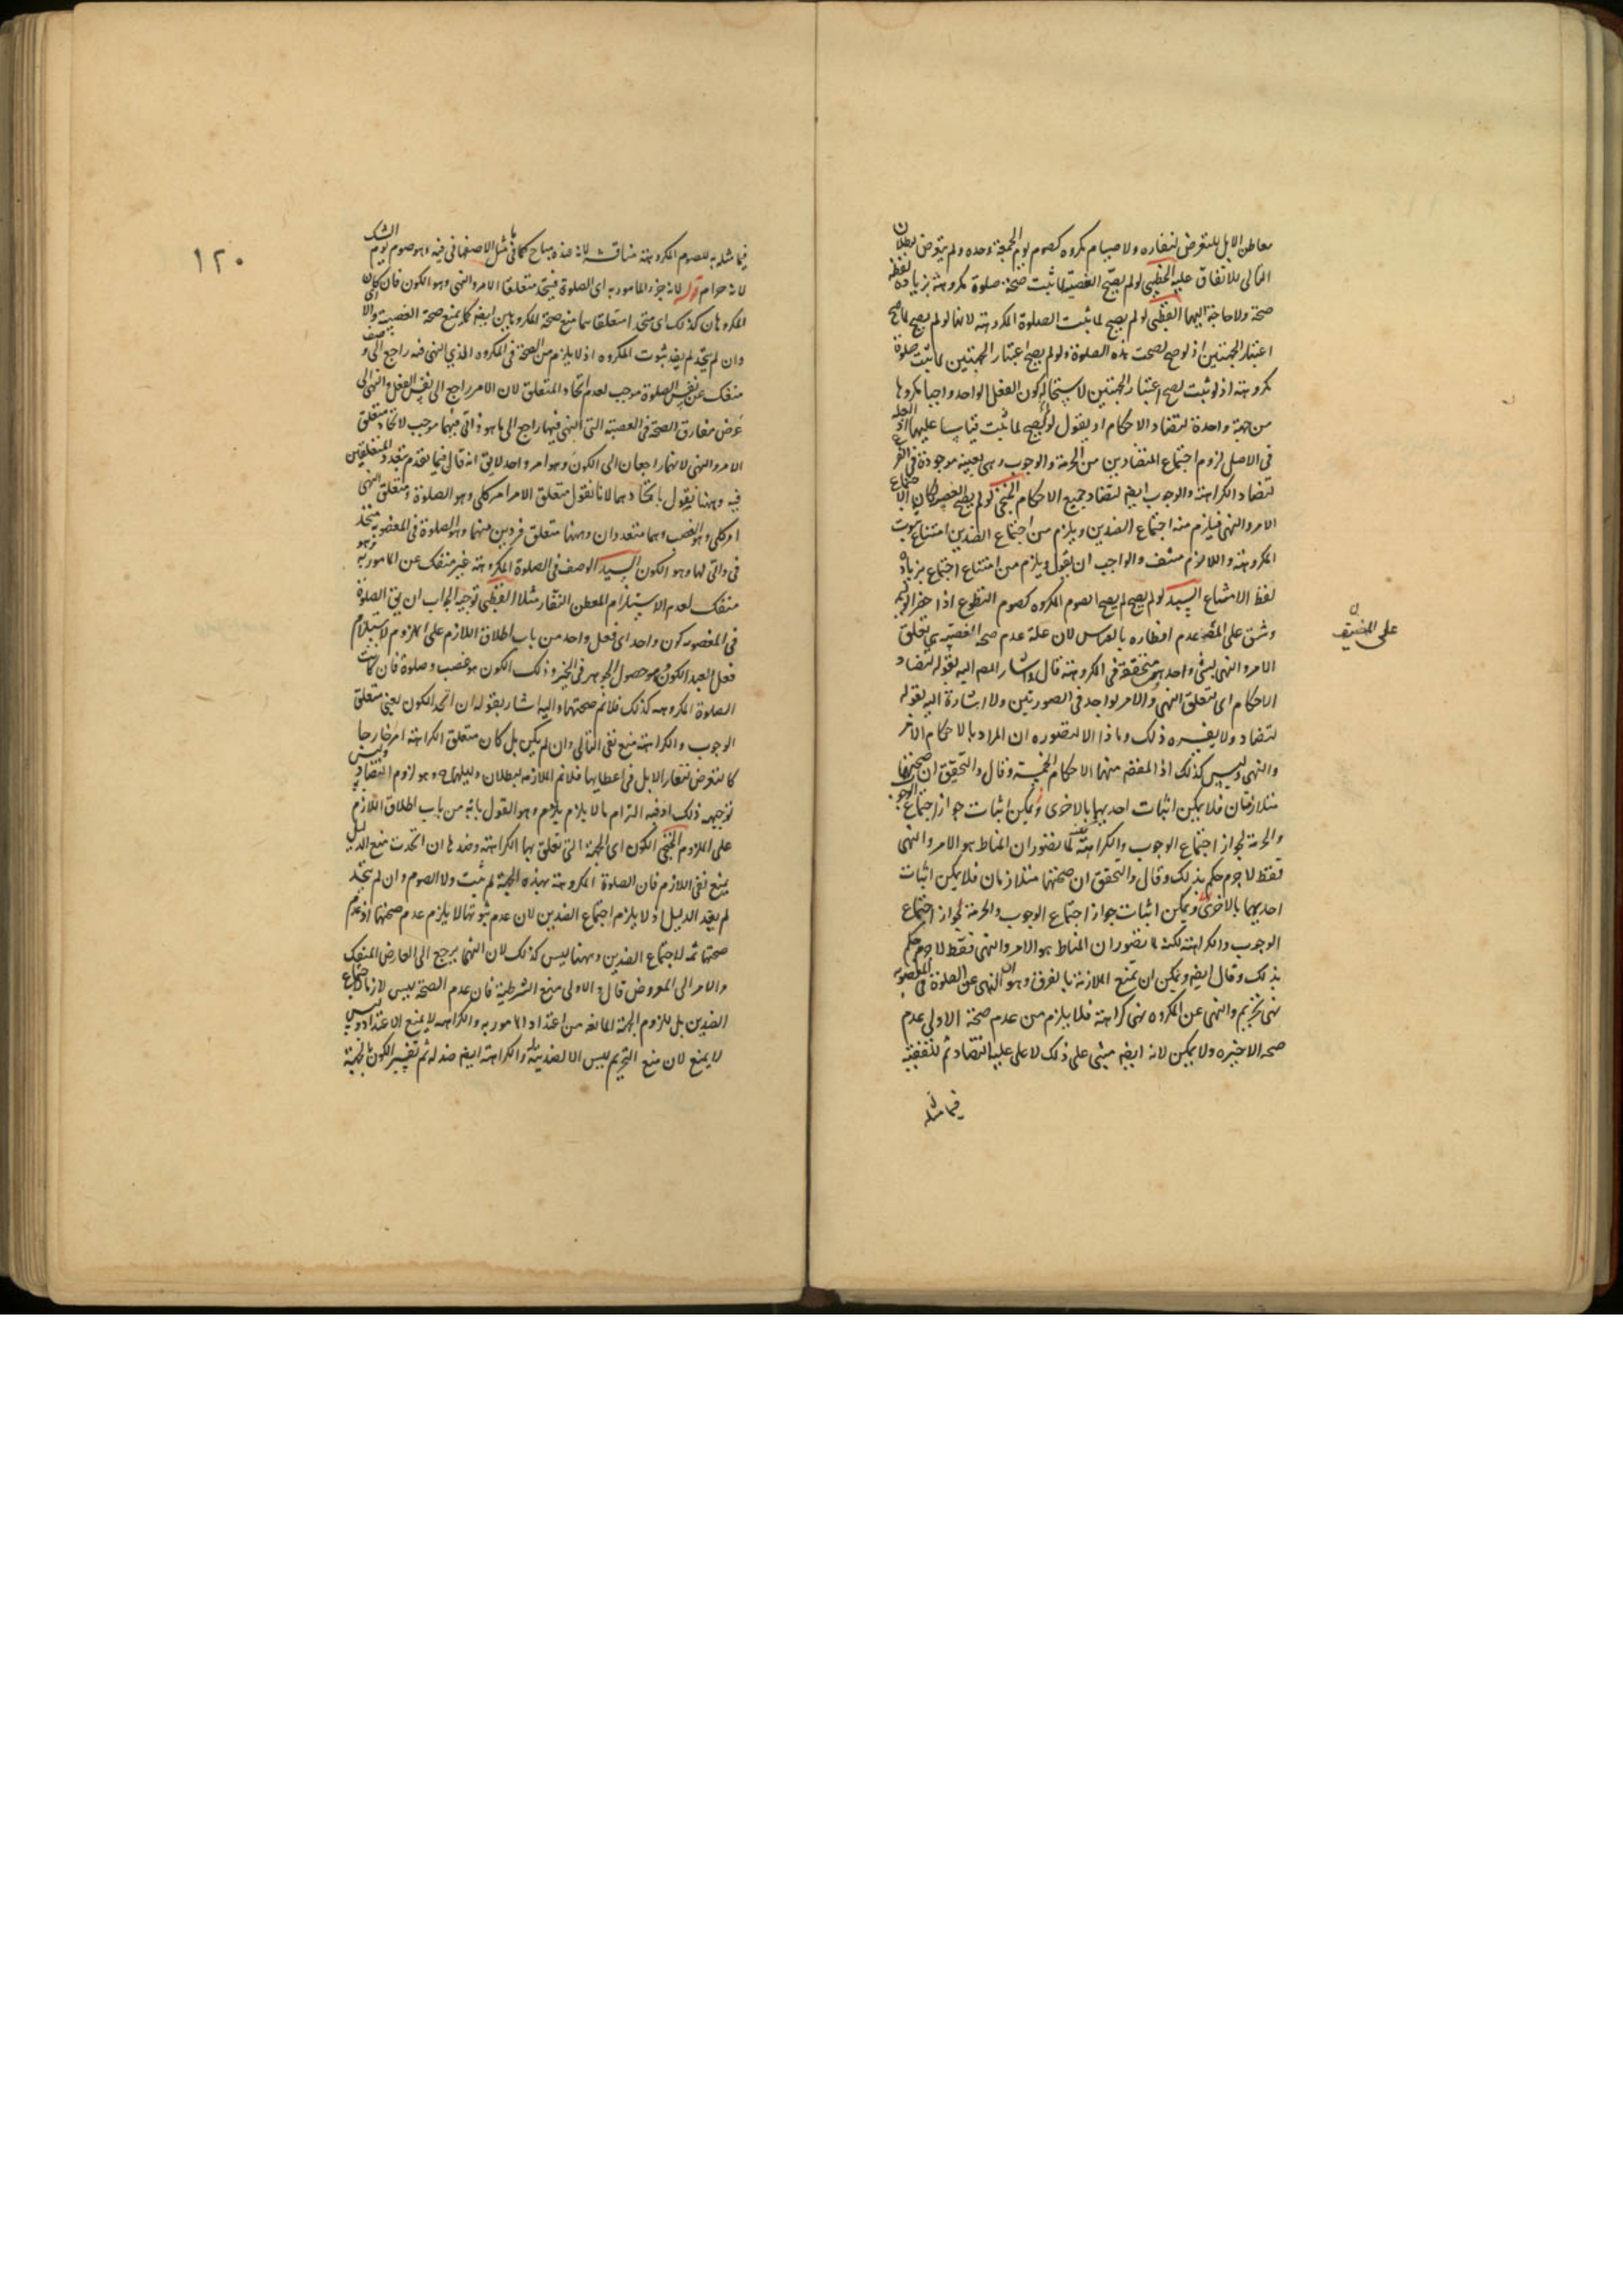 معاطن الابل للتعرض لنفاره ولا صيام مكروه كصوم يوم الجمعة وحده ولم يتعرض لبطلان
التالى للاتفاق عليه الخطيبى لو لم يصح الغصبية لما ثبت صحة صلوة مكروهة بزيادة لفظة
صحة ولا حاجة اليها القطبى لو لم يصح لما ثبت الصلوة المكروهة لانها لو لم يصح لما صح
اعتبار الجهتين اذ لو صح لصحت هذه الصلوة ولو لم يصح اعتبار الجهتين لما ثبت صلوة
مكروهة اذ لو ثبت لصح اعتبار الجهتين لاستحالة كون الفعل الواحد واجبا مكروها
من جهة واحدة لتضاد الاحكام او يقول لو لم يصح لما ثبت قياسا عليها اذ العلة
فى الاصل لزوم اجتماع المتضادين من الحرمة والوجوب وهى بعينه موجودة فى الفرع
لتضاد الكراهة والوجوب ايضا لتضاد جميع الاحكام الخنجى لو لم يصح الغصب لكان لاجتماع
الامر والنهى فيلزم منه اجتماع الضدين ويلزم من اجتماع الضدين امتناع ثبوت
المكروهة واللازم منتف والواجب ان يقول ويلزم من امتناع اجتماع بزيادة
لفظ الامتناع السيد لو لم يصح لم يصح الصوم المكروه كصوم التطوع اذا حضر الوليمة
وشق على المضيف عدم افطاره بالقياس لان علة عدم صحة الغصبية هى تعلق
على المضيف
الامر والنهى بشئ واحد هى متحققة فى المكروهة قال واشار المص اليه بقوله لتضاد
الاحكام اى لتعلق النهى والامر بواحد فى الصورتين ولا اشارة اليه بقوله
لتضاد ولا يفسره ذلك وما ذا الا لتصوره ان المراد بالاحكام الامر
والنهى وليس كذلك اذ المفهم منهما الاحكام الخمسة وقال والتحقيق ان صحتهما
متلازمتان فلا يمكن اثبات احديهما بالاخرى ويمكن اثبات جواز اجتماع الوجوب
والحرمة لجواز اجتماع الوجوب والكراهة لما تصور ان المناط هو الامر والنهى
فقط لا جرم حكم بذلك وقال والتحقق ان صحتهما متلازمان فلا يمكن اثبات
احديهما بالاخرى ويمكن اثبات جواز اجتماع الوجوب والحرمة لجواز اجتماع
الوجوب والكراهة لكنه لما تصور ان المناط هو الامر والنهى فقط لا جرم حكم
بذلك وقال ايضا ويمكن ان تمنع الملازمة بالفرق وهو ان النهى عن الصلوة فى المغصوبة
نهى تحريم والنهى عن المكروه نهى كراهة فلا يلزم من عدم صحة الاولى عدم
صحة الاخيرة ولا يمكن لانه ايضا مبنى على ذلك لا على علية التضاد ثم لتفقيه
فيما مثله
١٢٠
فيما مثله به للصوم المكروهة مناقشة لانه عنده مباح كما فى مثل الاصفهانى فيه وهو صوم يوم الشك
لانه حرام قوله لانه جزء المامور به اى الصلوة فيتحد متعلقا الامر والنهى وهو الكون فان كان
المكروهان كذلك اى متحدا متعلقاهما منع صحة المكروهين ايضا كما يمنع صحة الغصبية والا
وان لم يتحد لم يفد ثبوت المكروه اذ لا يلزم من الصحة فى المكروه الذى النهى فيه راجع الى وصف
منفك عن نفس الصلوة موجب لعدم اتحاد المتعلق لان الامر راجع الى نفس الفعل والنهى الى
عرض مفارق الصحة فى الغصبية التى النهى فيها راجع الى ما هو ذاتى فيهما موجب لاتحاد متعلق
الامر والنهى لانهما راجعان الى الكون وهو امر واحد لا يق انه قال فيما تقدم بتعدد المتعلقين
فيه وههنا يقول باتحادهما لانا نقول متعلق الامر امر كلى وهو الصلوة ومتعلق النهى
امر كلى وهو الغصب وهما متعددان وههنا متعلق فردين منهما وهو الصلوة فى المغصوبة متحد
فى ذاتى لها وهو الكون السيد الوصف فى الصلوة المكروهة غير منفك عن المامور به وهو
منفك لعدم الاستلزام المعطن النفار مثلا القطبى توجيه الجواب ان يق الصلوة
فى المغصوبه كون واحد اى فعل واحد من باب اطلاق اللازم على الملزوم لاستلزام
فعل العبد الكون وهو حصول الجوهر فى الحيز وذلك الكون هو غصب وصلوة فان كانت
الصلوة المكروهه كذلك فلا نم صحتها واليه اشار بقوله ان اتحد الكون يعنى متعلق
الوجوب والكراهة منع نفى التالى وان لم يكن بل كان متعلق الكراهة امر خارجا
كالتعرض لنفار الابل فى اعطانها فلا نم الملازمة لبطلان دليلها ح وهو لزوم التضاد وليس
توجيهه ذلك اذ فيه التزام ما لا يلزم وهو القول بانه من باب اطلاق اللازم
على الملزوم الخنجى الكون اى الجهة التى تعلق بها الكراهة وضدها ان اتحدت منع الدليل
بمنع نفى اللازم فان الصلوة المكروهة بهذه الجهة لم تثبت ولا الصوم وان لم يتحد
لم يفد الدليل اذ لا يلزم اجتماع الضدين لان عدم ثبوتها لا يلزم عدم صحتها اذ عدم
صحتها ثمه لاجتماع الضدين وههنا ليس كذلك لان النهى يرجع الى العارض المنفك
والامر الى المعروض قال والاولى منع الشرطية فان عدم الصحة ليس لازما لاجتماع
الضدين بل للزوم الجهة المانعة من اعتداد المامور به والكراهه لا يمنع الاعتداد وليس
لا يمنع لان منع التحريم ليس الا لضديته له والكراهة ايضا ضد له ثم تفسير الكون بالجهة